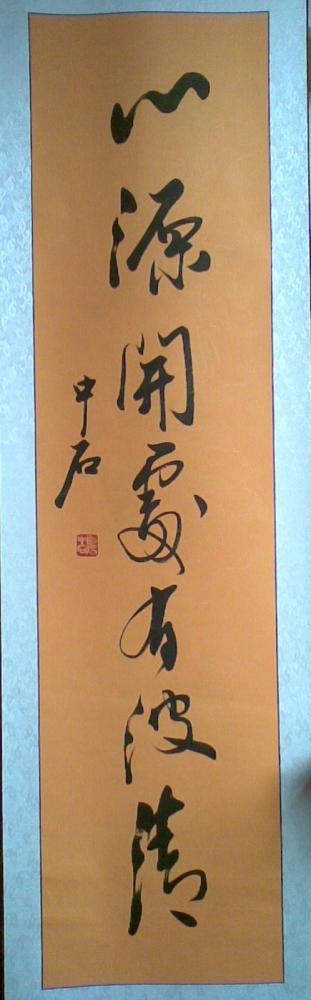 心源開處有波清
中石